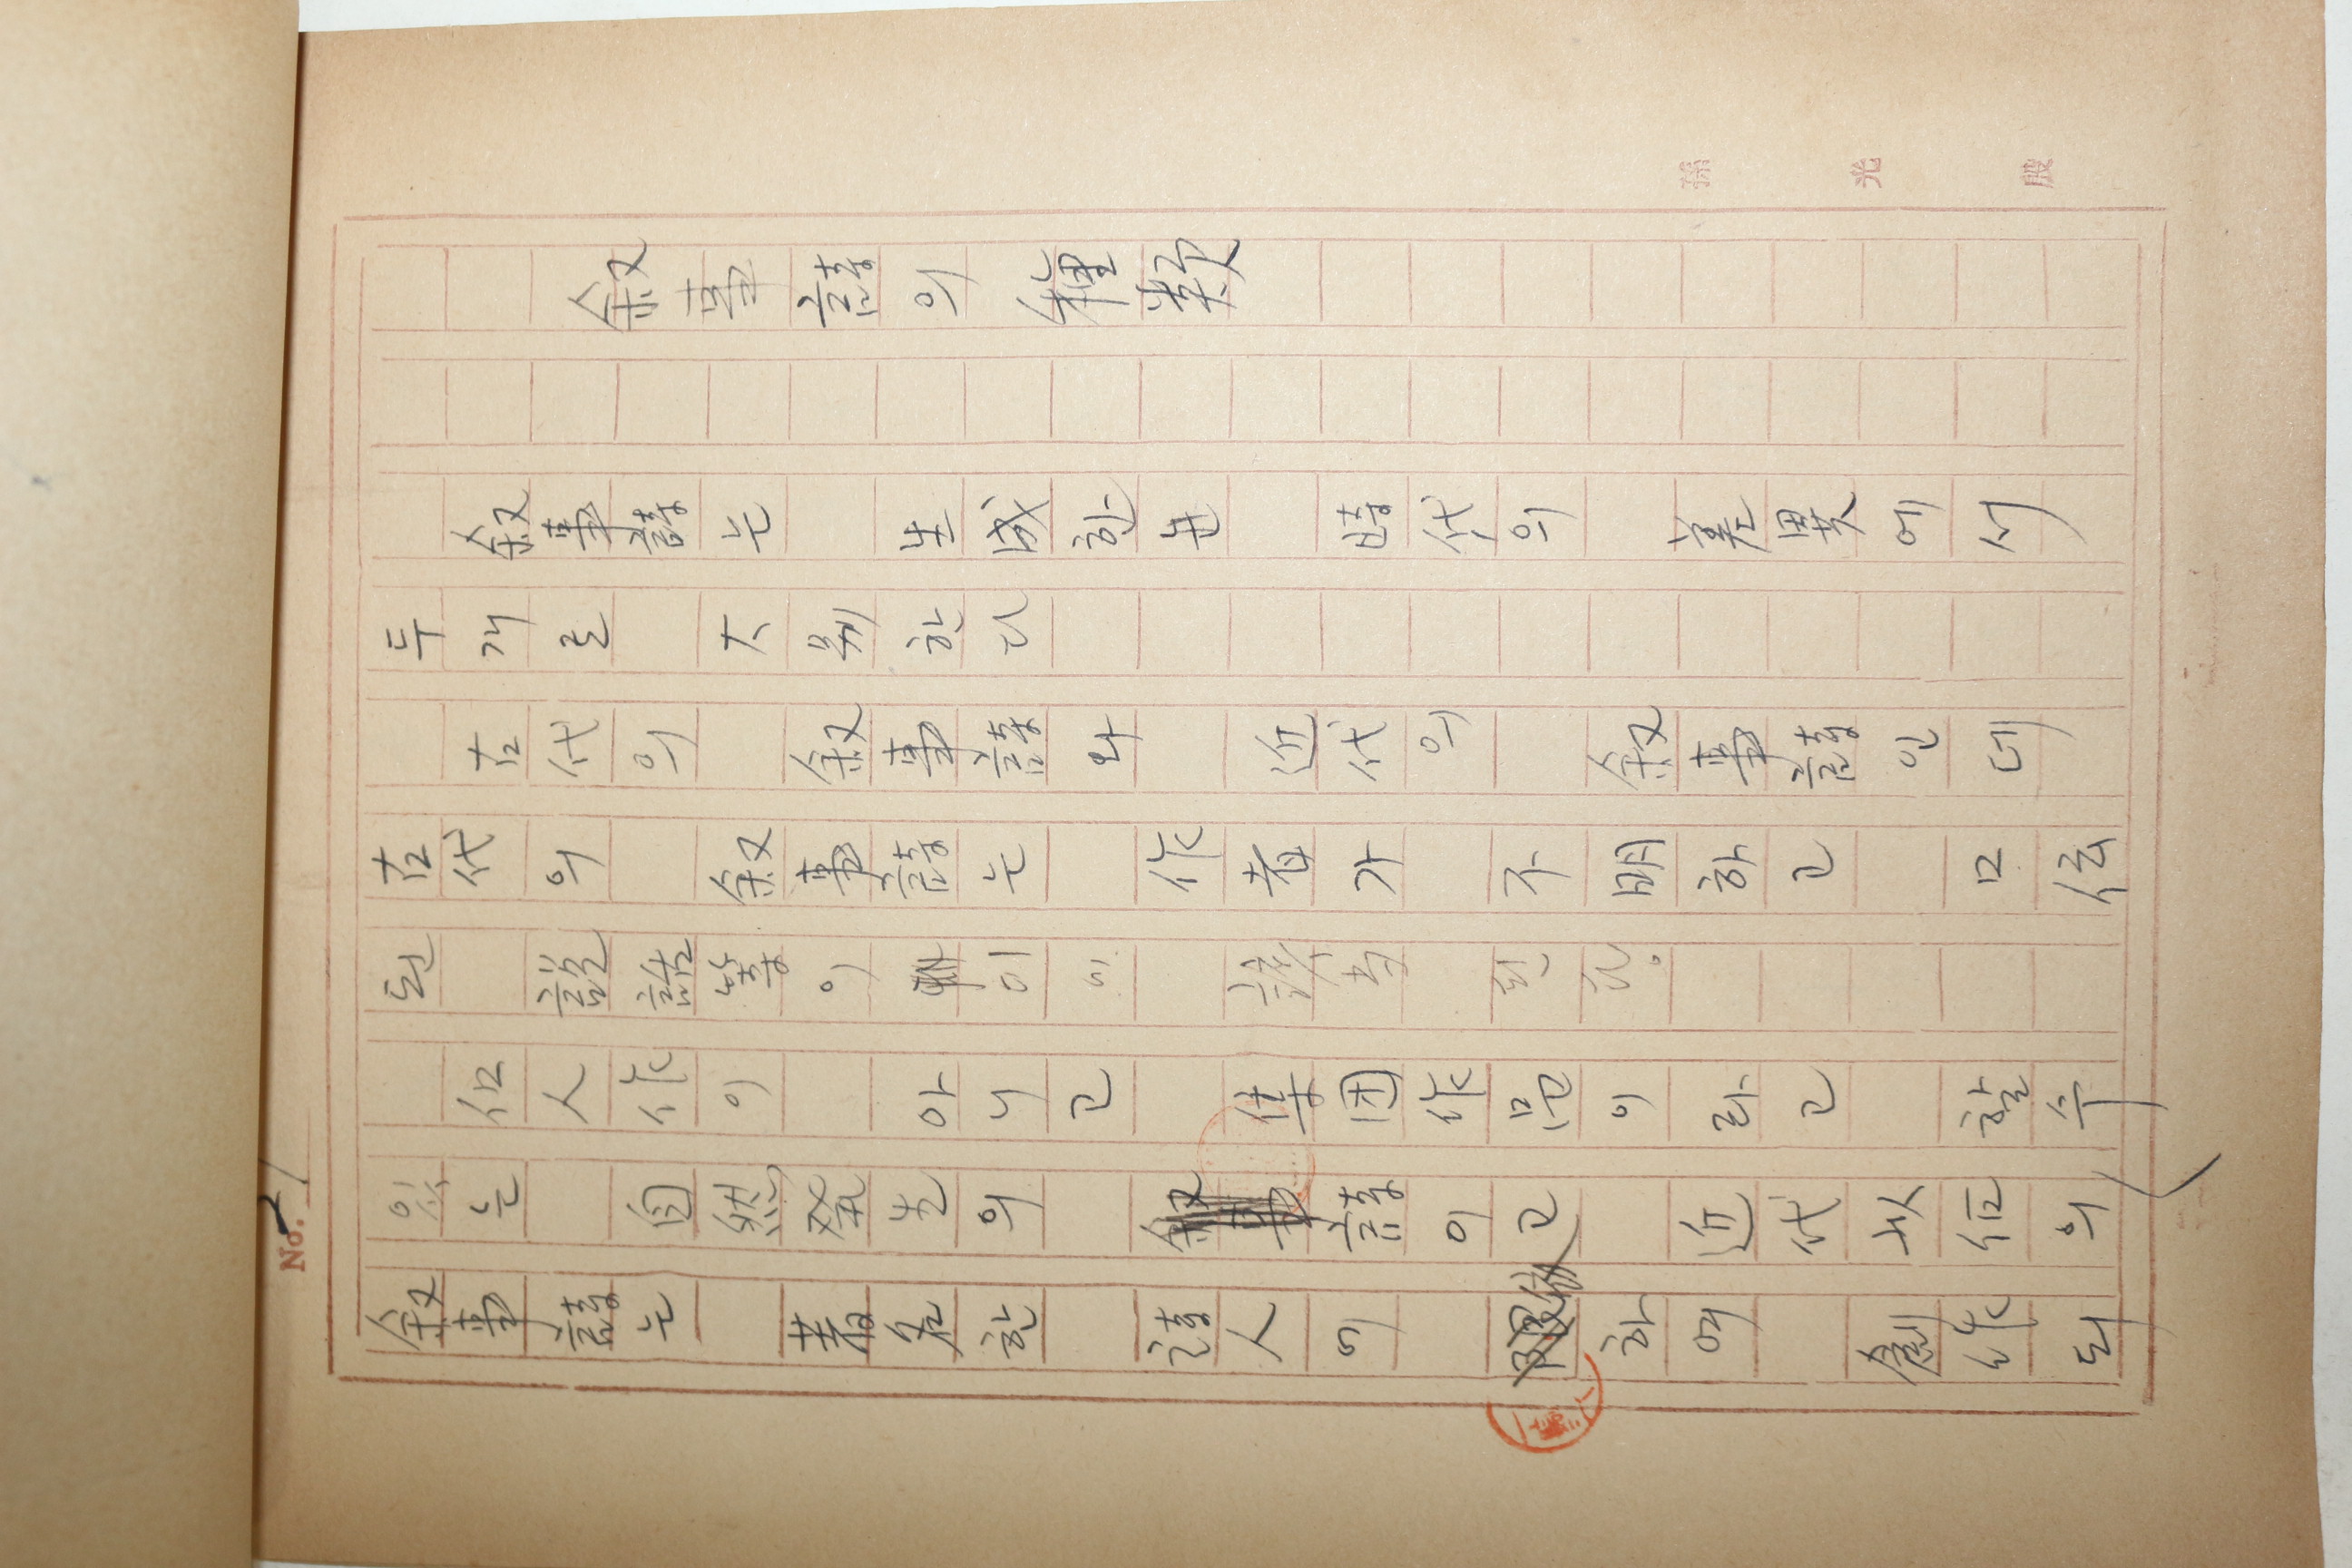 No. 21
叙事詩의 種類
叙事詩는 生成하는 時代의 差異에서
두개로 大別한다
古代의 叙事詩와 近代의 叙事詩인데
古代의 叙事詩는 作者가 不明하고 口伝
된 説話等이 이에 該当된다。
個人作이 아니고 集団作品이라고 할수
있는 自然発生의 叙事詩이고 近代
叙事詩는 著名한 詩人에 依하여 創作되
孫光殷